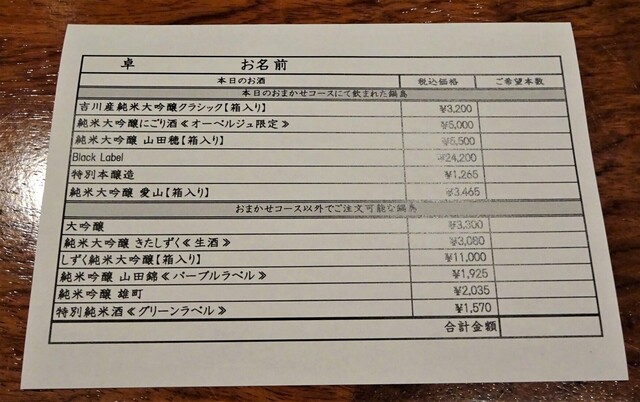 卓 お名前
本日のお酒 税込価格 ご希望本数
本日のおまかせコースにて飲まれた鍋島
吉川産純米大吟醸クラシック【箱入り】 ¥3,200
純米大吟醸にごり酒≪オーベルジュ限定≫ ¥5,000
純米大吟醸 山田穂【箱入り】 ¥5,500
Black Label ¥24,200
特別本醸造 ¥1,265
純米大吟醸 愛山【箱入り】 ¥3,465
おまかせコース以外でご注文可能な鍋島
大吟醸 ¥3,300
純米大吟醸 きたしずく≪生酒≫ ¥3,080
しずく純米大吟醸【箱入り】 ¥11,000
純米吟醸 山田錦≪パープルラベル≫ ¥1,925
純米吟醸 雄町 ¥2,035
特別純米酒≪グリーンラベル≫ ¥1,570
合計金額